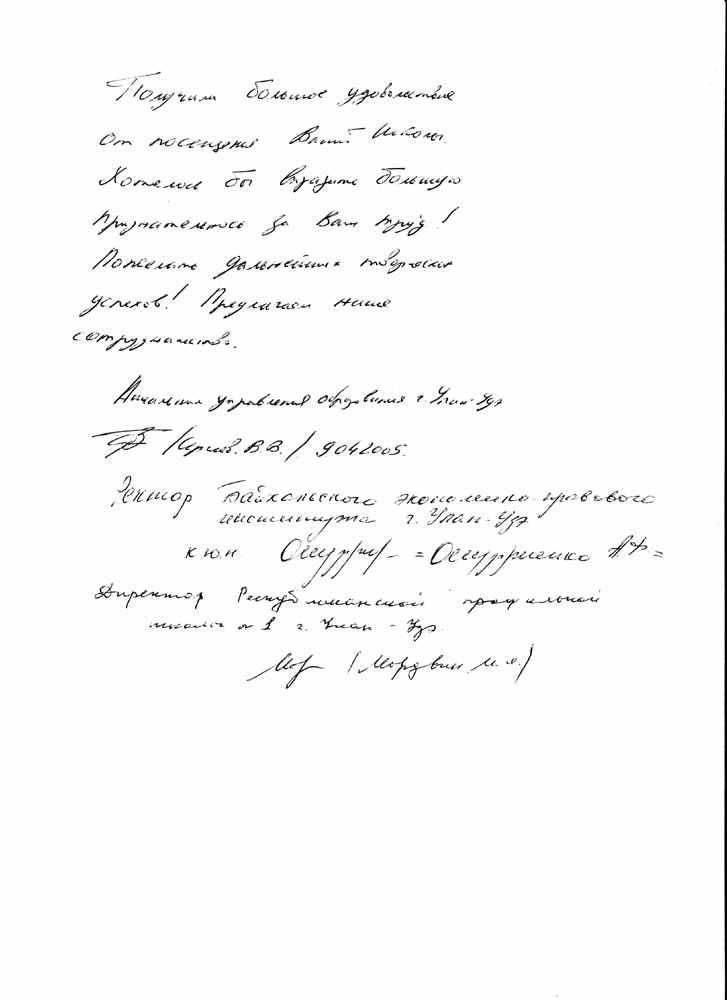 Получили большое удовольствие
от посещения Вашей Школы.
Хотелось бы выразить большую
признательность за Ваш труд!
Пожелать дальнейших творческих
успехов! Предлагаем наше
сотрудничество.
Начальник управления образования г. Улан-Удэ
В.В./ 9042005.
Ректор Байкальского экономико-правового
института г. Улан-Удэ
к.ю.н. А.Ф =
Директор Республиканской профильной
школы № 1 г. Улан-Удэ.
(Мордвин М.Я.)